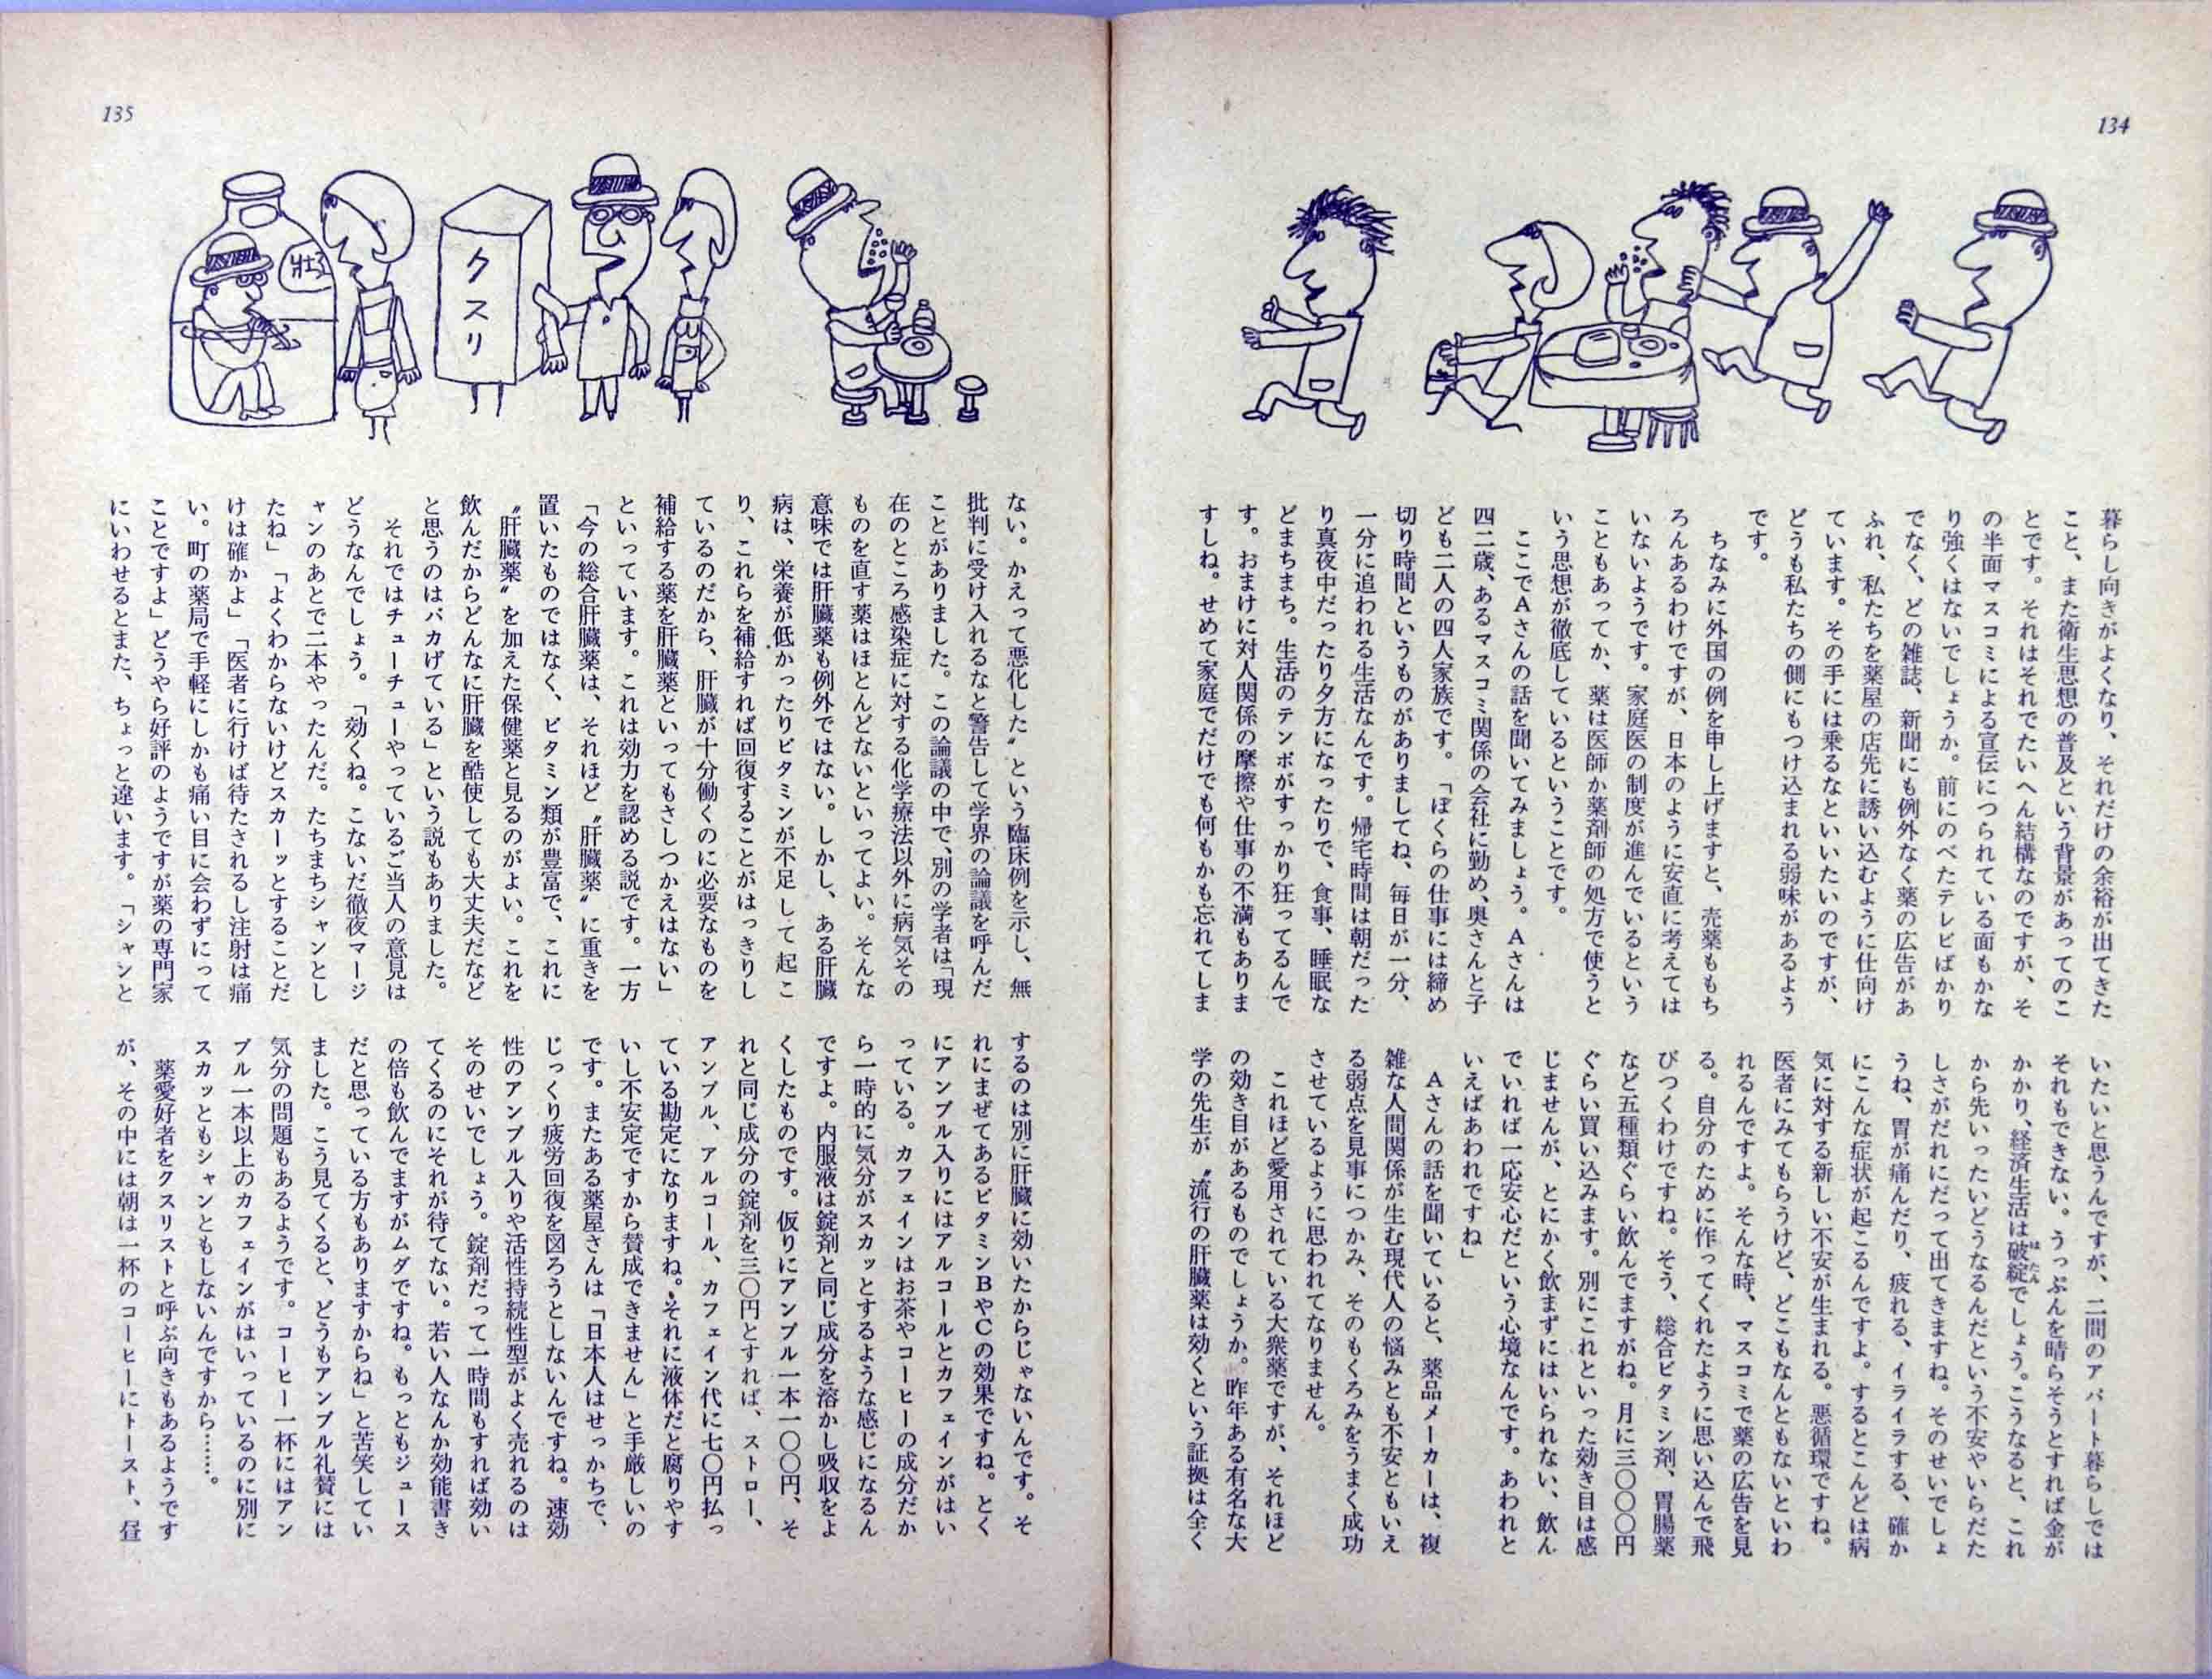 134
暮らし向きがよくなり、それだけの余裕が出てきた
こと、また衛生思想の普及という背景があってのこ
とです。それはそれでたいへん結構なのですが、そ
の半面マスコミによる宣伝につられている面もかな
り強くはないでしょうか。前にのべたテレビばかり
でなく、どの雑誌、新聞にも例外なく薬の広告があ
ふれ、私たちを薬屋の店先に誘い込むように仕向け
ています。その手には乗るなといいたいのですが、
どうも私たちの側にもつけ込まれる弱味があるよう
です。
ちなみに外国の例を申し上げますと、売薬ももち
ろんあるわけですが、日本のように安直に考えては
いないようです。家庭医の制度が進んでいるという
こともあってか、薬は医師か薬剤師の処方で使うと
いう思想が徹底しているということです。
ここでAさんの話を聞いてみましょう。Aさんは
四二歳、あるマスコミ関係の会社に勤め、奥さんと子
ども二人の四人家族です。「ぼくらの仕事には締め
切り時間というものがありましてね、毎日が一分、
一分に追われる生活なんです。帰宅時間は朝だった
り真夜中だったり夕方になったりで、食事、睡眠な
どまちまち。生活のテンポがすっかり狂ってるんで
す。おまけに対人関係の摩擦や仕事の不満もありま
すしね。せめて家庭でだけでも何もかも忘れてしま
いたいと思うんですが、二間のアパート暮らしでは
それもできない。うっぷんを晴らそうとすれば金が
かかり、経済生活は破綻でしょう。こうなると、これ
はたん
から先いったいどうなるんだという不安やいらだた
しさがだれにだって出てきますね。そのせいでしょ
うね、胃が痛んだり、疲れる、イライラする、確か
にこんな症状が起こるんですよ。するとこんどは病
気に対する新しい不安が生まれる。悪循環ですね。
医者にみてもらうけど、どこもなんともないといわ
れるんですよ。そんな時、マスコミで薬の広告を見
る。自分のために作ってくれたように思い込んで飛
びつくわけですね。そう、総合ビタミン剤、胃腸薬
など五種類ぐらい飲んでますがね。月に三〇〇〇円
ぐらい買い込みます。別にこれといった効き目は感
じませんが、とにかく飲まずにはいられない、飲ん
でいれば一応安心だという心境なんです。あわれと
いえばあわれですね」
Aさんの話を聞いていると、薬品メーカーは、複
雑な人間関係が生む現代人の悩みとも不安ともいえ
る弱点を見事につかみ、そのもくろみをうまく成功
させているように思われてなりません。
これほど愛用されている大衆薬ですが、それほど
の効き目があるものでしょうか。昨年ある有名な大
学の先生が〝流行の肝臓薬は効くという証拠は全く
135
壮
クスリ
ない。かえって悪化した〟という臨床例を示し、無
批判に受け入れるなと警告して学界の論議を呼んだ
ことがありました。この論議の中で、別の学者は「現
在のところ感染症に対する化学療法以外に病気その
ものを直す薬はほとんどないといってよい。そんな
意味では肝臓薬も例外ではない。しかし、ある肝臓
病は、栄養が低かったりビタミンが不足して起こ
り、これらを補給すれば回復することがはっきりし
ているのだから、肝臓が十分働くのに必要なものを
補給する薬を肝臓薬といってもさしつかえはない」
といっています。これは効力を認める説です。一方
「今の総合肝臓薬は、それほど〝肝臓薬〟に重きを
置いたものではなく、ビタミン類が豊富で、これに
〝肝臓薬〟を加えた保健薬と見るのがよい。これを
飲んだからどんなに肝臓を酷使しても大丈夫だなど
と思うのはバカげている」という説もありました。
それではチューチューやっているご当人の意見は
どうなんでしょう。「効くね。こないだ徹夜マージ
ャンのあとで二本やったんだ。たちまちシャンとし
たね」「よくわからないけどスカーッとすることだ
けは確かよ」「医者に行けば待たされるし注射は痛
い。町の薬局で手軽にしかも痛い目に会わずにって
ことですよ」どうやら好評のようですが薬の専門家
にいわせるとまた、ちょっと違います。「シャンと
するのは別に肝臓に効いたからじゃないんです。そ
れにまぜてあるビタミンBやCの効果ですね。とく
にアンプル入りにはアルコールとカフェインがはい
っている。カフェインはお茶やコーヒーの成分だか
ら一時的に気分がスカッとするような感じになるん
ですよ。内服液は錠剤と同じ成分を溶かし吸収をよ
くしたものです。仮りにアンプル一本一〇〇円、そ
れと同じ成分の錠剤を三〇円とすれば、ストロー、
アンプル、アルコール、カフェイン代に七〇円払っ
ている勘定になりますね。それに液体だと腐りやす
いし不安定ですから賛成できません」と手厳しいの
です。またある薬屋さんは「日本人はせっかちで、
じっくり疲労回復を図ろうとしないんですね。速効
性のアンプル入りや活性持続性型がよく売れるのは
そのせいでしょう。錠剤だって一時間もすれば効い
てくるのにそれが待てない。若い人なんか効能書き
の倍も飲んでますがムダですね。もっともジュース
だと思っている方もありますからね」と苦笑してい
ました。こう見てくると、どうもアンプル礼賛には
気分の問題もあるようです。コーヒー一杯にはアン
プル一本以上のカフェインがはいっているのに別に
スカッともシャンともしないんですから……。
薬愛好者をクスリストと呼ぶ向きもあるようです
が、その中には朝は一杯のコーヒーにトースト、昼